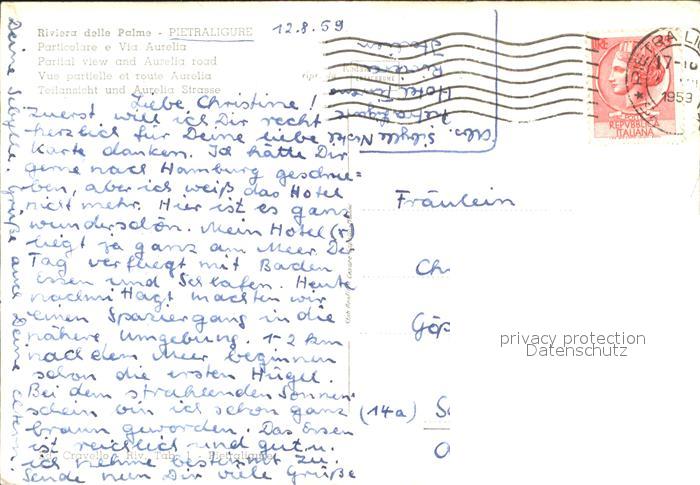 Riviera delle Palme - PIETRALIGURE
Particolare e Via Aurelia
Partial view and Aurelia road
Vue partielle et route Aurelia
Teilansicht und Aurelia Strasse
12.8.59
Liebe Christine!
zuerst will ich Dir recht
herzlich für Deine liebe
Karte danken. Ich hätte Dir
gerne nach Hamburg geschrie-
ben, aber ich weiß das Hotel
nicht mehr. Hier ist es ganz
wunderschön. Mein Hotel (x)
liegt ja ganz am Meer. Der
Tag verfliegt mit Baden
Essen und Schlafen. Heute
nachmittag machten wir
einen Spaziergang in die
nähere Umgebung. 1-2 km
nach dem Meer beginnen
schon die ersten Hügel.
Bei dem strahlenden Sonnen-
schein bin ich schon ganz
braun geworden. Das Essen
ist reichlich und gut u.
ich nehme bestimmt zu.
Sende nun Dir viele Grüße
Deine Sibylle. Grüße auch Deine Eltern!
Cravello - Riv. Tab. 1 - Pietraligure
Abs. Sibylle
Pietraligure
Hotel
Riviera
Italien
PIETRA LI
17-18
1959
REPVBBLICA
ITALIANA
Fräulein
Ch
Göp
(14a) S
O
privacy protection
Datenschutz